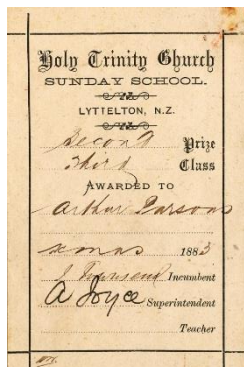 Holy Trinity Church
SUNDAY SCHOOL.
LYTTELTON, N.Z.
Second Prize
Third Class
AWARDED TO
Arthur Parsons
Xmas 1883
J Townsend Incumbent
A Joyce Superintendent
Teacher